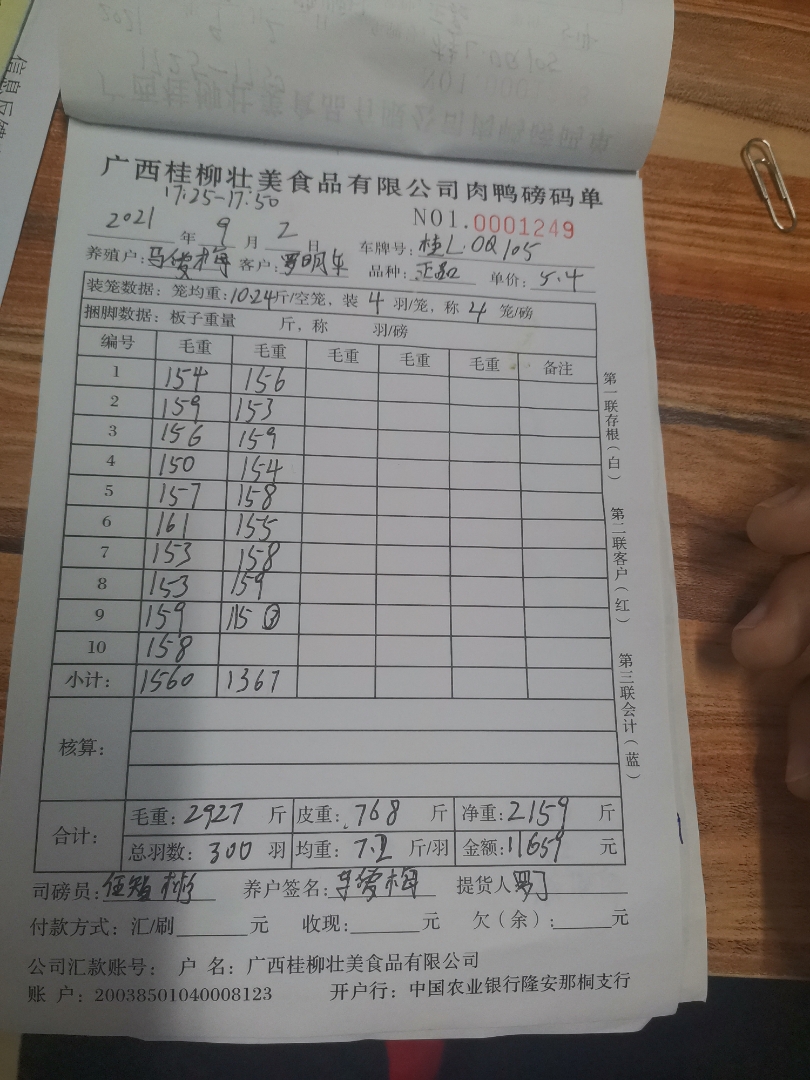 广西桂柳壮美食品有限公司肉鸭磅码单
17:25-17:50
NO1.0001249
2021 年 9 月 2 日 车牌号: 桂L:0Q105
养殖户: 马爱梅 客户: 罗明年 品种: 正品 单价: 5.4
装笼数据: 笼均重: 10.24 斤/空笼, 装 4 羽/笼, 称 4 笼/磅
捆脚数据: 板子重量 斤, 称 羽/磅
编号 毛重 毛重 毛重 毛重 毛重 备注
1 154 156
2 159 153
3 156 159
4 150 154
5 157 158
6 161 155
7 153 158
8 153 159
9 159 115 ③
10 158
小计: 1560 1367
核算:
合计: 毛重: 2927 斤 皮重: 768 斤 净重: 2159 斤
总羽数: 300 羽 均重: 7.2 斤/羽 金额: 11659 元
司磅员: 养户签名: 马爱梅 提货人 罗
付款方式: 汇/刷 元 收现: 元 欠(余): 元
公司汇款账号: 户 名: 广西桂柳壮美食品有限公司
账 户: 20038501040008123 开户行: 中国农业银行隆安那桐支行
第一联存根(白)
第二联客户(红)
第三联会计(蓝)